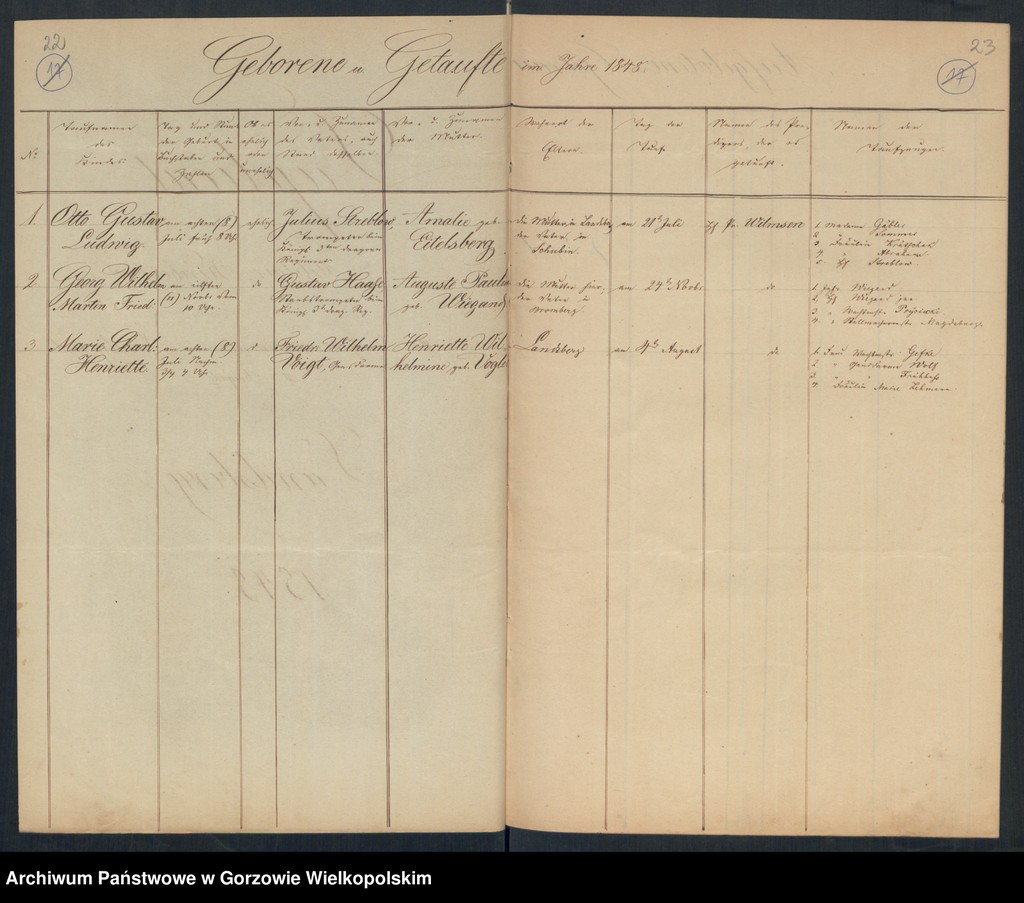 22
17
23
17
Geborene u Getaufte im Jahre 1848.
No
Taufnamen
des
Kindes
Tag und Stunde
der Geburt in
Buchstaben und
Zahlen
Ob es
ehelich
oder
unehelich
Vor- u. Zuname
des Vaters, auch
Stand desselben
Vor- u. Zuname
der Mutter.
Wohnort der
Eltern.
Tag der
Taufe
Namen des Pre-
digers, der es
getauft.
Namen der
Taufzeugen.
1
Otto Gustav
Ludwig.
am achten (8)
Juli früh 8 Uhr
ehelich
Julius Streblow,
Trompeter beim
Königl. 3ten Dragoner
Regiment
Amalie geb.
Eitelsberg
die Mutter in Landsberg
der Vater in
Schubin.
am 21t Juli
Pr. Wilmsen
1. Madame
2. " Sommer
3. Fräulein
4. "
5. Streblow
2
Georg Wilhelm
Martin Fried.
am elften
(11) Novbr
10 Uhr.
do
Gustav Haase
Stabstrompeter beim
Königl. 3t Drag. Rg.
Auguste Paulin
geb. Wiegand
die Mutter hier,
der Vater in
Bromberg
am 29t Novbr
do
1. Wiegand
2. Wiegand jun
3.
4. Magdeburg
3
Marie Charl.
Henriette
am achten (8)
Juli Nachm
7 Uhr
Friedr. Wilhelm
Voigt, Gensdarme
Henriette Wil-
helmine, geb. Vogler
Landsberg
am 4ts August
do
1. Frau Wachtmstr.
2. " Gensdarm Wolf
3. " "
4. Fräulein Marie Lehmann
Landsberg
1848
Archiwum Państwowe w Gorzowie Wielkopolskim